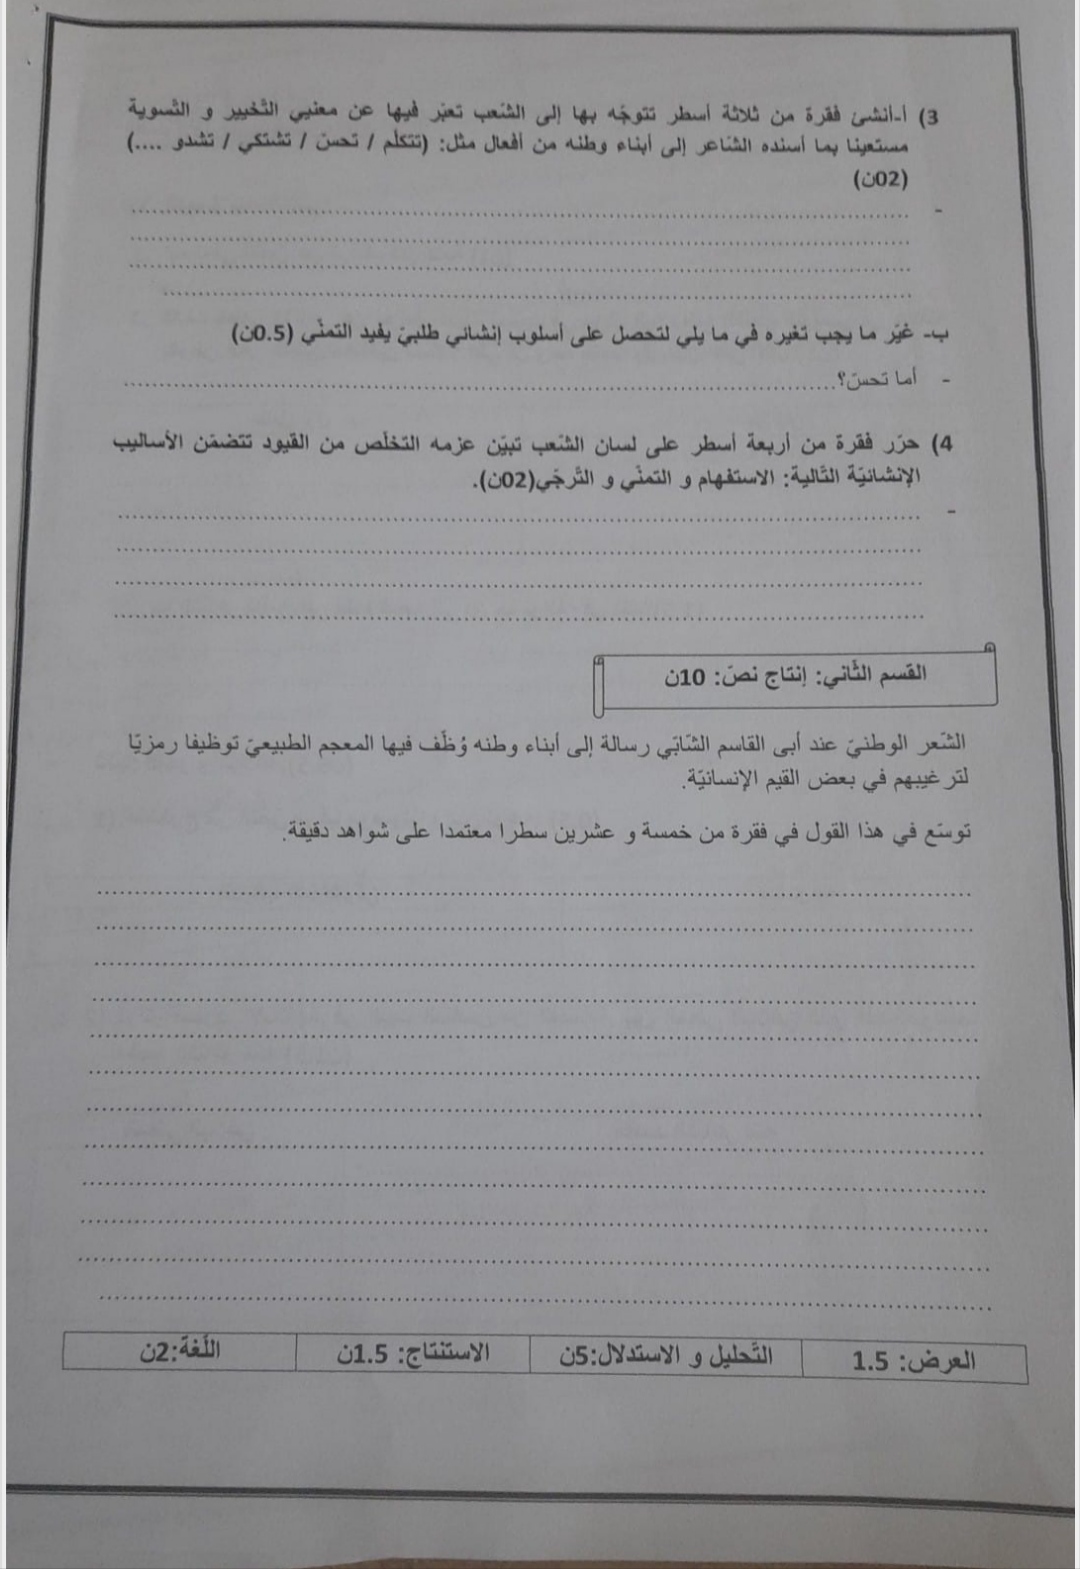 3) أ-أنشئ فقرة من ثلاثة أسطر تتوجّه بها إلى الشّعب تعبّر فيها عن معنيي التّخيير و التّسوية
مستعينا بما أسنده الشّاعر إلى أبناء وطنه من أفعال مثل: (تتكلّم / تحسّ / تشتكي / تشدو ....)
(02ن)
- ........................................
........................................
........................................
........................................
ب- غيّر ما يجب تغيره في ما يلي لتحصل على أسلوب إنشائي طلبيّ يفيد التمنّي (0.5ن)
- أما تحسّ؟........................................
4) حرّر فقرة من أربعة أسطر على لسان الشّعب تبيّن عزمه التخلّص من القيود تتضمّن الأساليب
الإنشائيّة التّالية: الاستفهام و التمنّي و التّرجّي(02ن).
- ........................................
........................................
........................................
........................................
القسم الثّاني: إنتاج نصّ: 10ن
الشّعر الوطنيّ عند أبى القاسم الشّابّي رسالة إلى أبناء وطنه وُظّف فيها المعجم الطبيعيّ توظيفا رمزيّا
لترغيبهم في بعض القيم الإنسانيّة.
توسّع في هذا القول في فقرة من خمسة و عشرين سطرا معتمدا على شواهد دقيقة.
........................................
........................................
........................................
........................................
........................................
........................................
........................................
........................................
........................................
........................................
........................................
........................................
العرض: 1.5 التّحليل و الاستدلال:5ن الاستنتاج: 1.5ن اللّغة:2ن